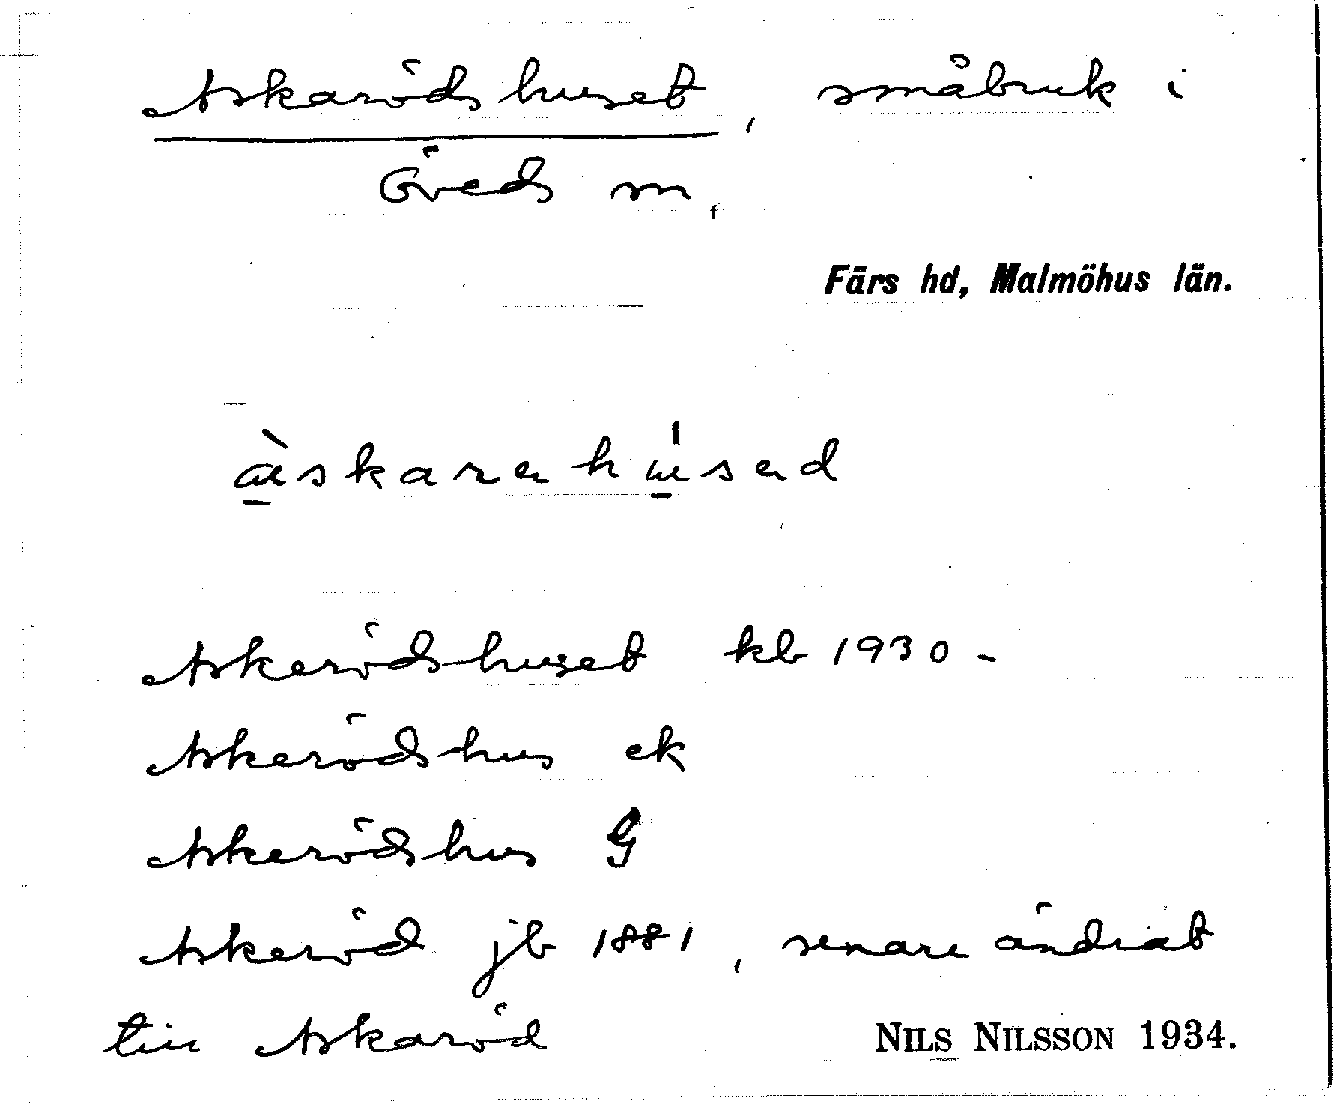 Askarödshuset, småbruk i
Öveds sn,
Färs hd, Malmöhus län.
Askerödshuset kb 1930 -
Askerödshus ek
Askerödshus G
Askeröd jb 1881, senare ändrat
till Askaröd
NILS NILSSON 1934.